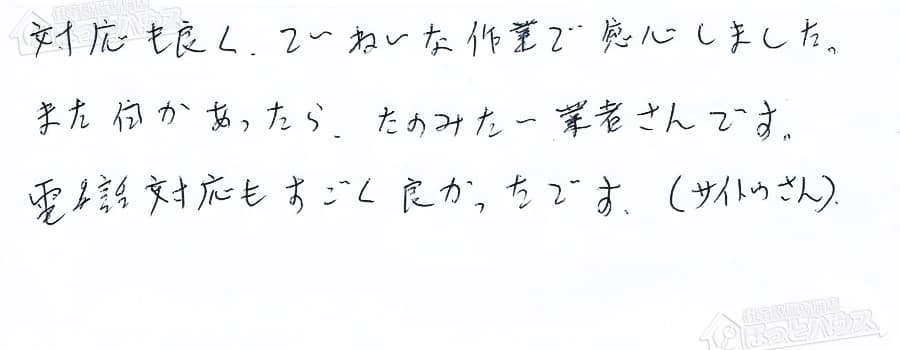 対応も良く、ていねいな作業で感心しました。
また何かあったら、たのみたい業者さんです。
電話対応もすごく良かったです、(サイトウさん).
ほっとハウス